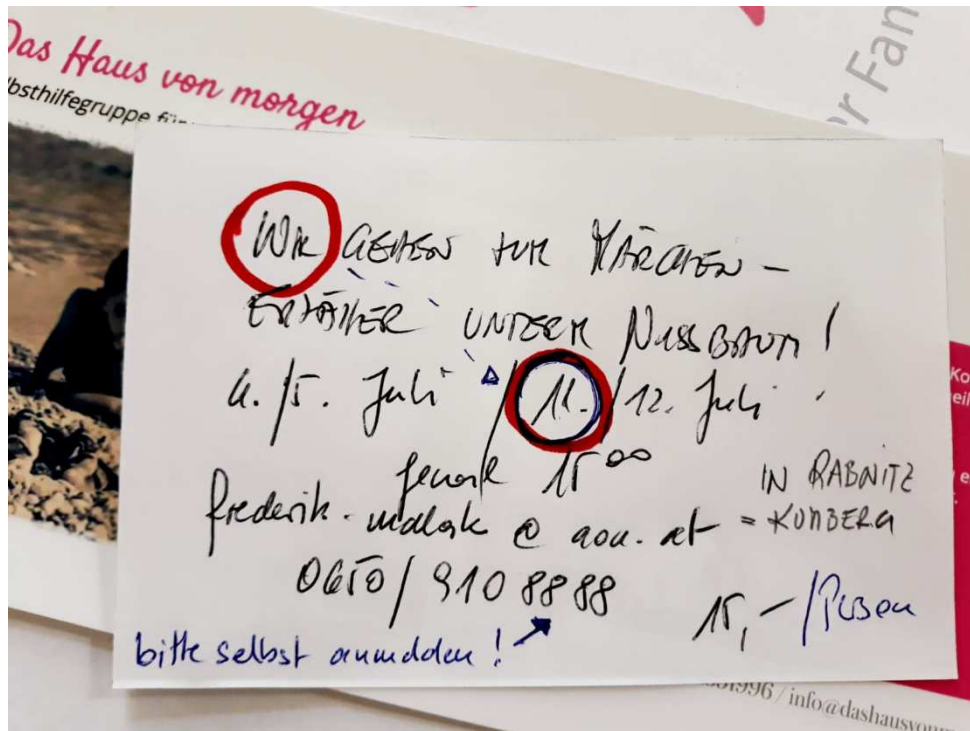 Das Haus von morgen
bsthilfegruppe für
er Fan
WIR GEHEN ZUM MÄRCHEN-
ERZÄHLER UNTERM NUSSBAUM!
4./5. Juli / 11./12. Juli
jeweils 15⁰⁰
IN RABNITZ
frederik. @ aon.at = KUMBERG
0650/910 8888
15,-/Person
bitte selbst anmelden!
996 / info@dashausvonm